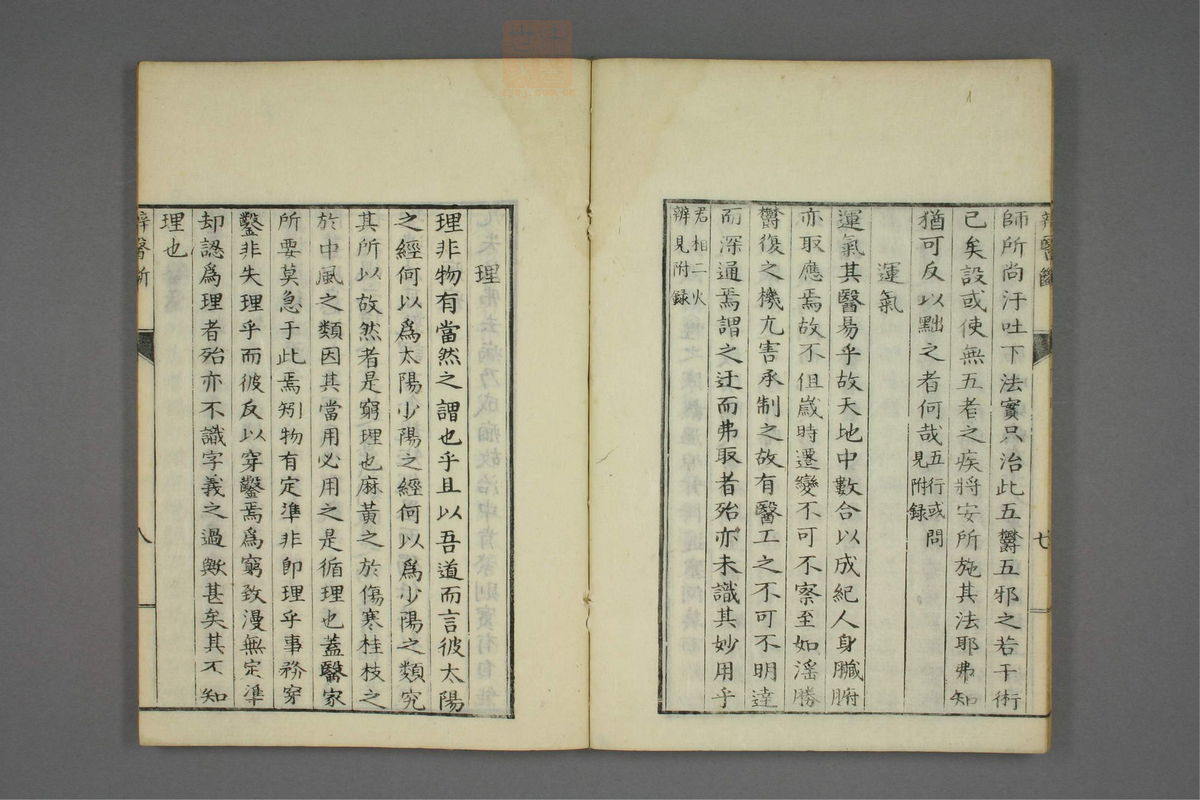 師所尚汗吐下法實只治此五鬱五邪之若干術
已矣設或使無五者之疾將安所施其法耶弗知
猶可反以黜之者何哉五行或問見附錄
運氣
運氣其醫易乎故天地中數合以成紀人身臟腑
亦取應焉故不但歲時遷變不可不察至如淫勝
鬱復之機亢害承制之故有醫工之不可不明達
而深通焉謂之迂而弗取者殆亦未識其妙用乎
君相二火辨見附錄
七
理
理非物有當然之謂也乎且以吾道而言彼太陽
之經何以爲太陽少陽之經何以爲少陽之類究
其所以故然者是窮理也麻黃之於傷寒桂枝之
於中風之類因其當用必用之是循理也蓋醫家
所要莫急于此焉矧物有定準非卽理乎事務穿
鑿非失理乎而彼反以穿鑿焉爲窮致漫無定準
却認爲理者殆亦不識字義之過歟甚矣其不知
理也
八